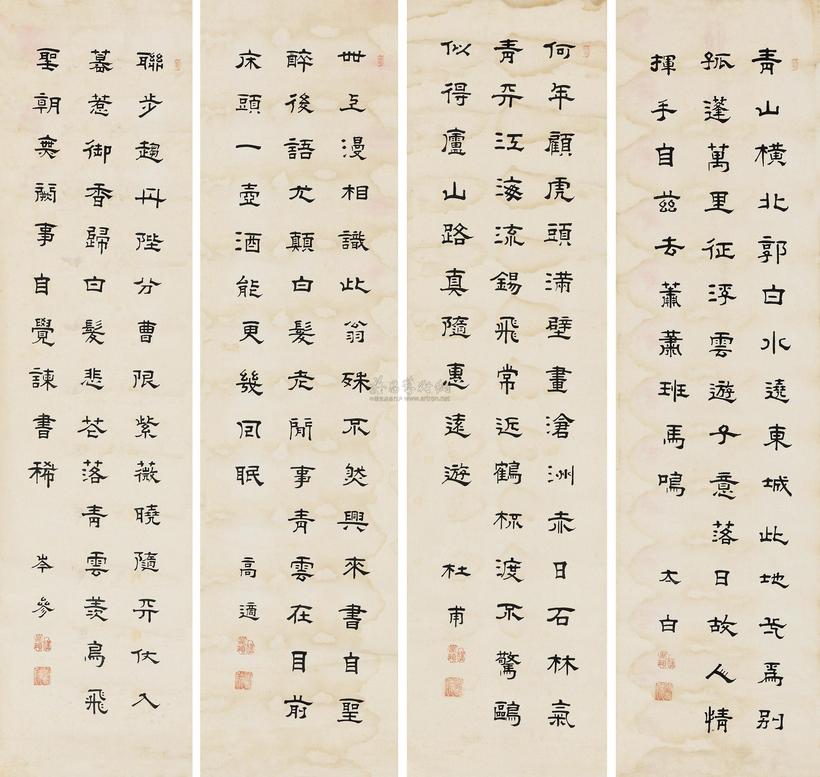 青山橫北郭白水遶東城此地一為別
孤蓬萬里征浮雲遊子意落日故人情
揮手自茲去蕭蕭班馬鳴
太白
何年顧虎頭滿壁畫滄洲赤日石林氣
青天江海流錫飛常近鶴杯渡不驚鷗
似得廬山路真隨惠遠遊
杜甫
世上漫相識此翁殊不然興來書自聖
醉後語尤顛白髮老閒事青雲在目前
床頭一壺酒能更幾回眠
高適
聯步趨丹陛分曹限紫薇曉隨天仗入
暮惹御香歸白髮悲花落青雲羨鳥飛
聖朝無闕事自覺諫書稀
岑參
www.artron.net